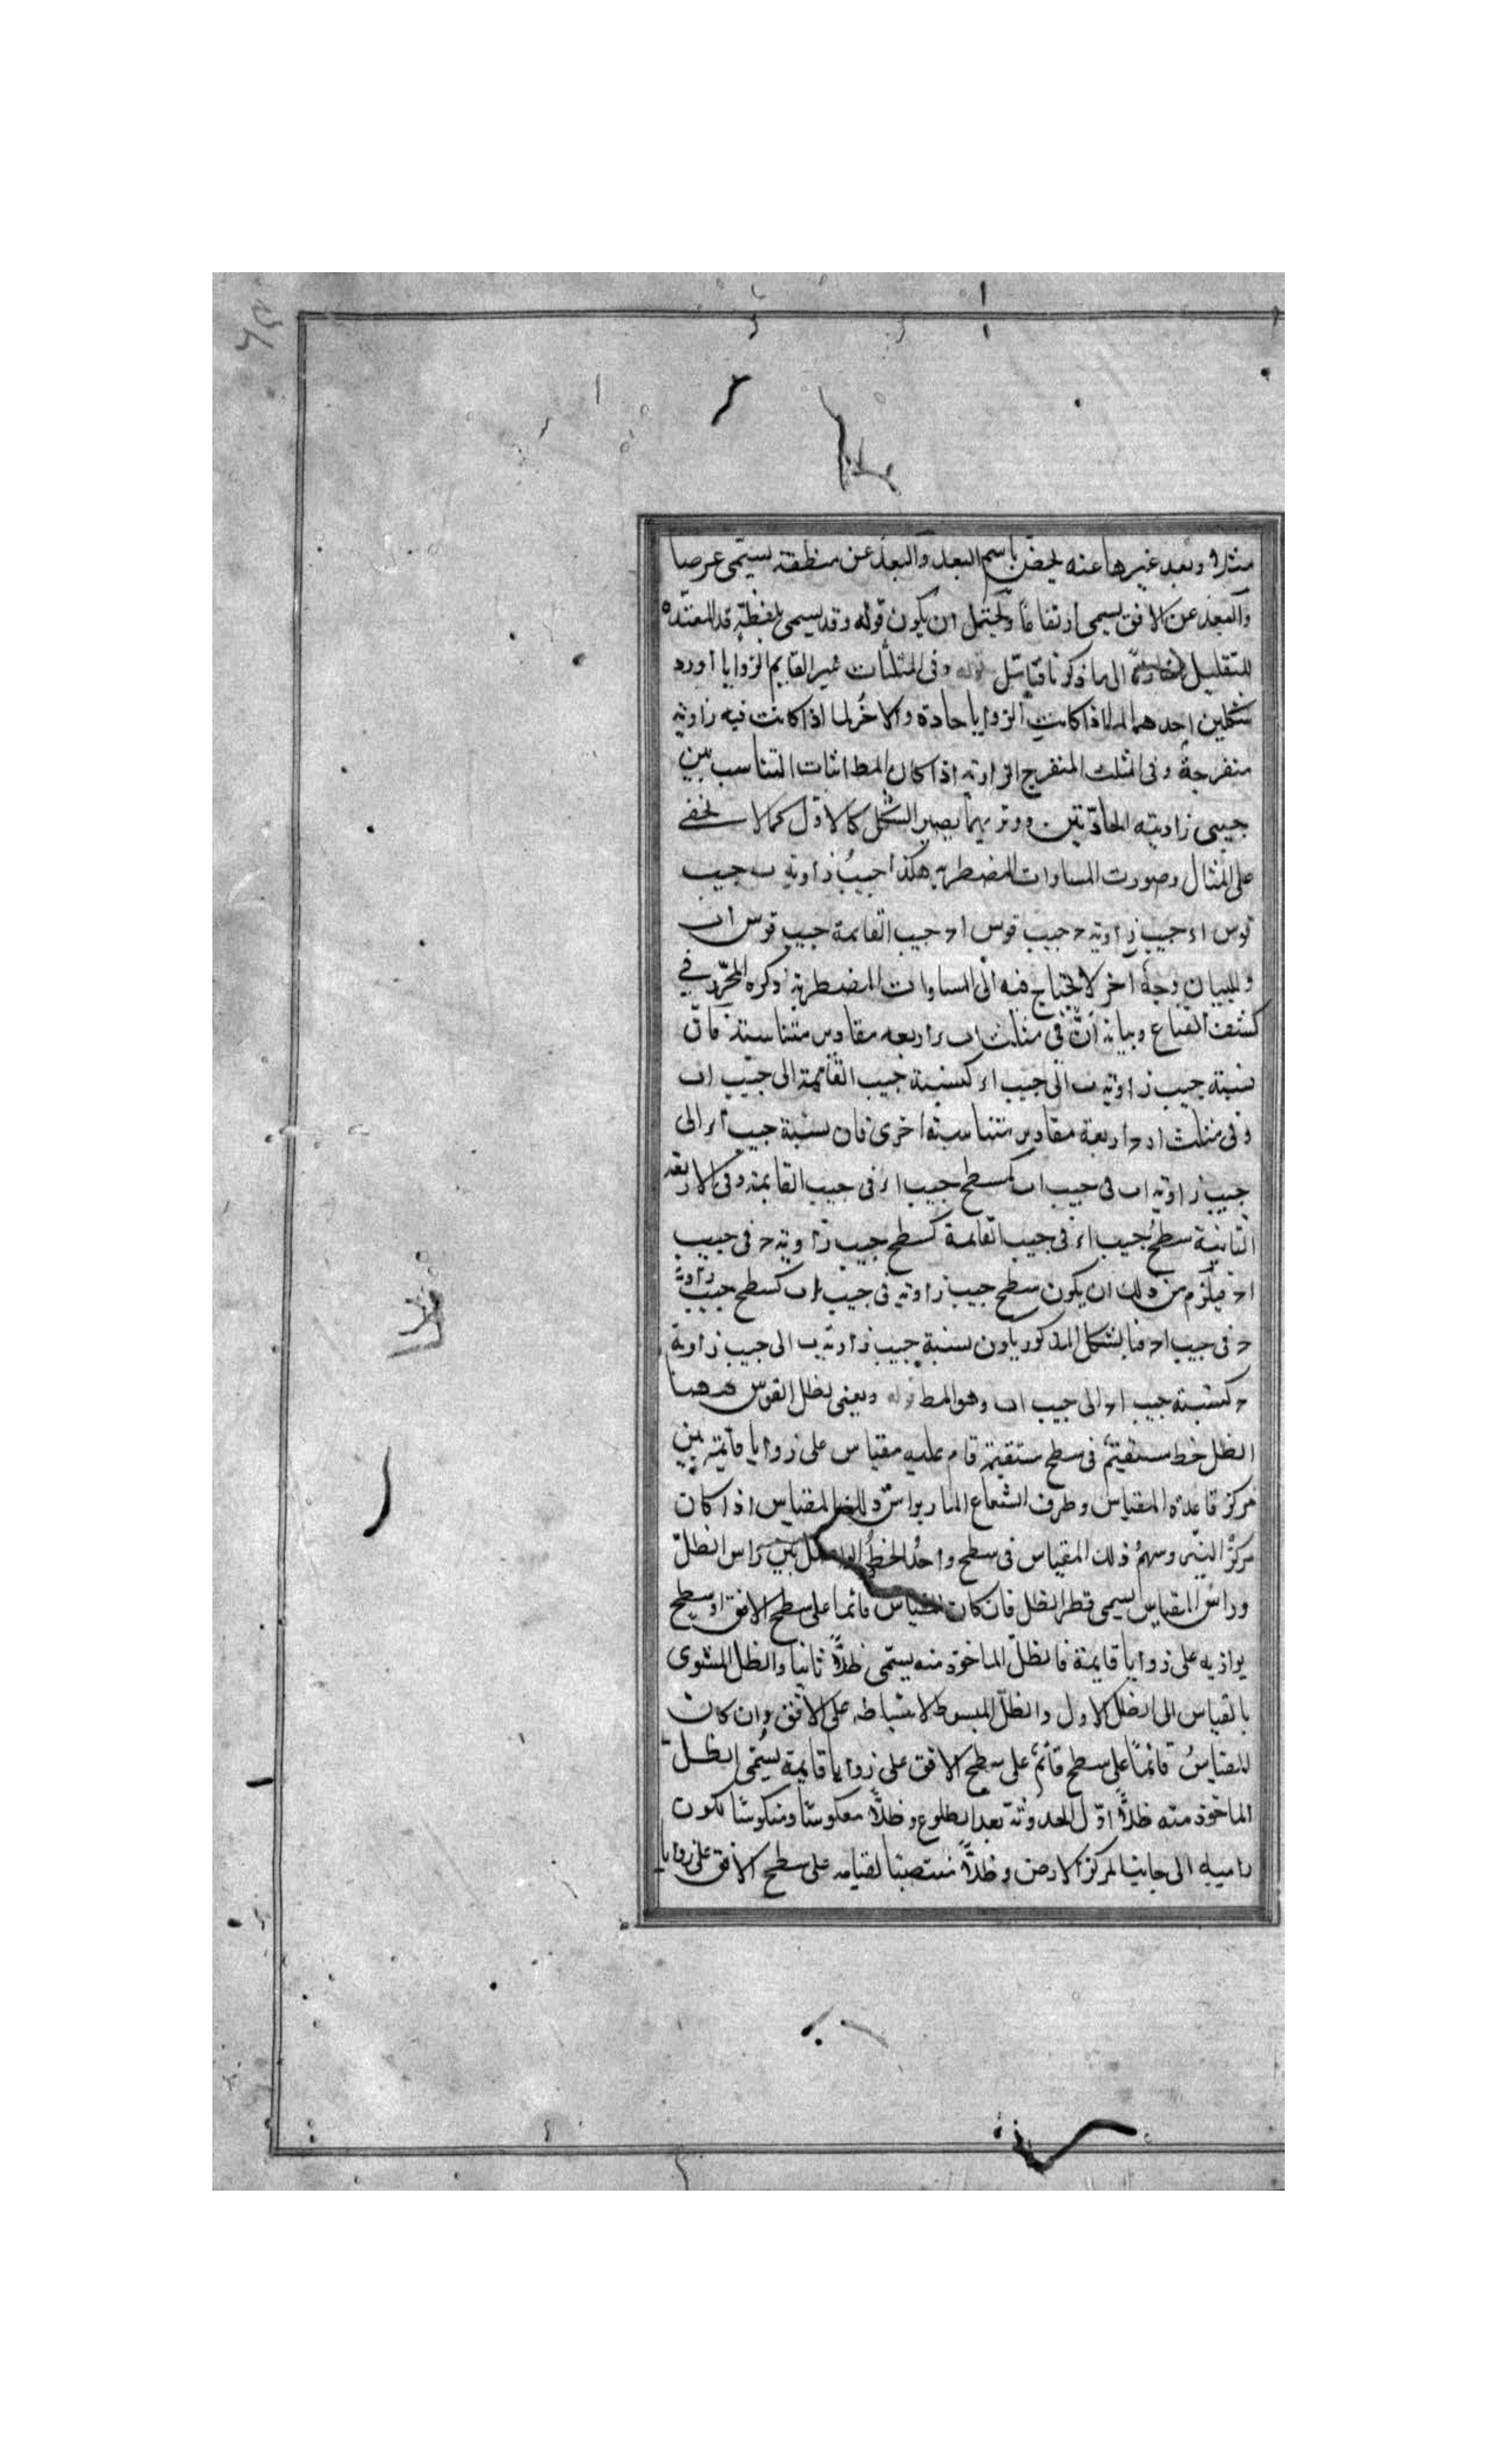 مثلا وبعد غيرها عنه يخصّ باسم البعد والبعد عن منطقته يسمّى عرضا
والبعد عن الافق يسمى ارتفاعًا ويحتمل ان يكون قوله وقد يسمى بلفظة قد المفيدة
للتقليل الى ما ذكرنا فتأمّل قوله وفى المثلثات غير القايم الزوايا اورد
شكلين احدهما لما اذا كانت الزوايا حادة والاخُر لما اذا كانت فيه زاوية
منفرجةٌ وفى المثلث المنفرج الزاوية اذا كان المط اثبات التناسب بين
جيبى زاويته الحادّتين ووتريهما يصير الشكل كالاوّل كما لا يخفى
على المثال وصورت المساوات المضطربة هكذا جيبُ زاوية ب جيب
قوس اء جيب زاوية ح جيب قوس اح جيب القايمة جيب قوس اب
وللبيان وجهٌ اخر لا يحتاج فيه الى المساوات المضطربة ذكره المحرّر في
كشف القناع وبيانه انّ فى مثلث اب ء اربعه مقادير متناسبة فانّ
نسبة جيب زاوية ب الى جيب اء كنسبة جيب القائمة الى جيب اب
وفى مثلث اء ح اربعة مقادير متناسبة اخرى فان نسبة جيب اء الى
جيب زاوية اب فى جيب اب كمسطح جيب اء فى جيب القايمة وفى الاربعة
الثانية سطح جيب اء فى جيب القايمة كسطح جيب زاوية ح فى جيب
اح فيلزم من ذلك ان يكون سطح جيب زاوية فى جيب اب كسطح جيب زاوية
ح فى جيب اح فبالشكل المذكور يكون نسبة جيب زاوية ب الى جيب زاوية
ح كنسبة جيب اح الى جيب اب وهو المط قوله ويعنى بظل القوس ههنا
الظل خط مستقيم فى سطح مستقيم قام عليه مقياس على زوايا قايمة بين
مركز قاعدة المقياس وطرف الشعاع المار براس ذلك المقياس اذا كان
مركزُ النيّر وسهمُ ذلك المقياس فى سطح واحد والخطُّ الواصل بين راس الظلّ
وراس المقياس يسمى قطر الظل فان كان المقياس قائما على سطح الافق او سطح
يوازيه على زوايا قايمة فالظلّ الماخوذ منه يسمّى ظلاًّ ثانيا والظل المستوى
بالقياس الى الظل الاول والظلّ المبسوط لانبساطه على الافق وان كان
المقياسُ قائمًا على سطح قائم على سطح الافق على زوايا قايمة يُسمّى الظلّ
الماخوذ منه ظلاًّ اوّل لحدوثه بعد الطلوع وظلاًّ معكوسًا ومنكوسًا لكون
راسه الى جانب مركز الارض وظلاًّ منتصبًا لقيامه على سطح الافق على زوايا